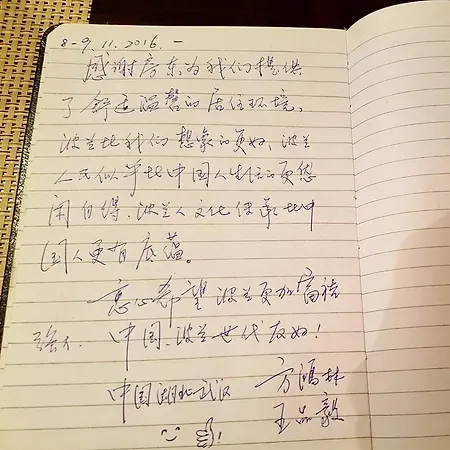 8-9.11.2016.-
感谢房东为我们提供
了舒适温馨的居住环境、
波兰比我们想象的更好、波兰
人民似乎比中国人生活的更悠
闲自得、波兰人文化传承比中
国人更有底蕴。
衷心希望波兰更加富裕
强大、中国、波兰世代友好!
中国湖北武汉 方鸿林
王品毅